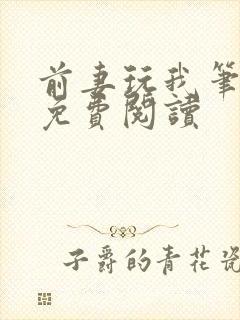 前妻玩我筆
免費閱讀
子爵的青花瓷